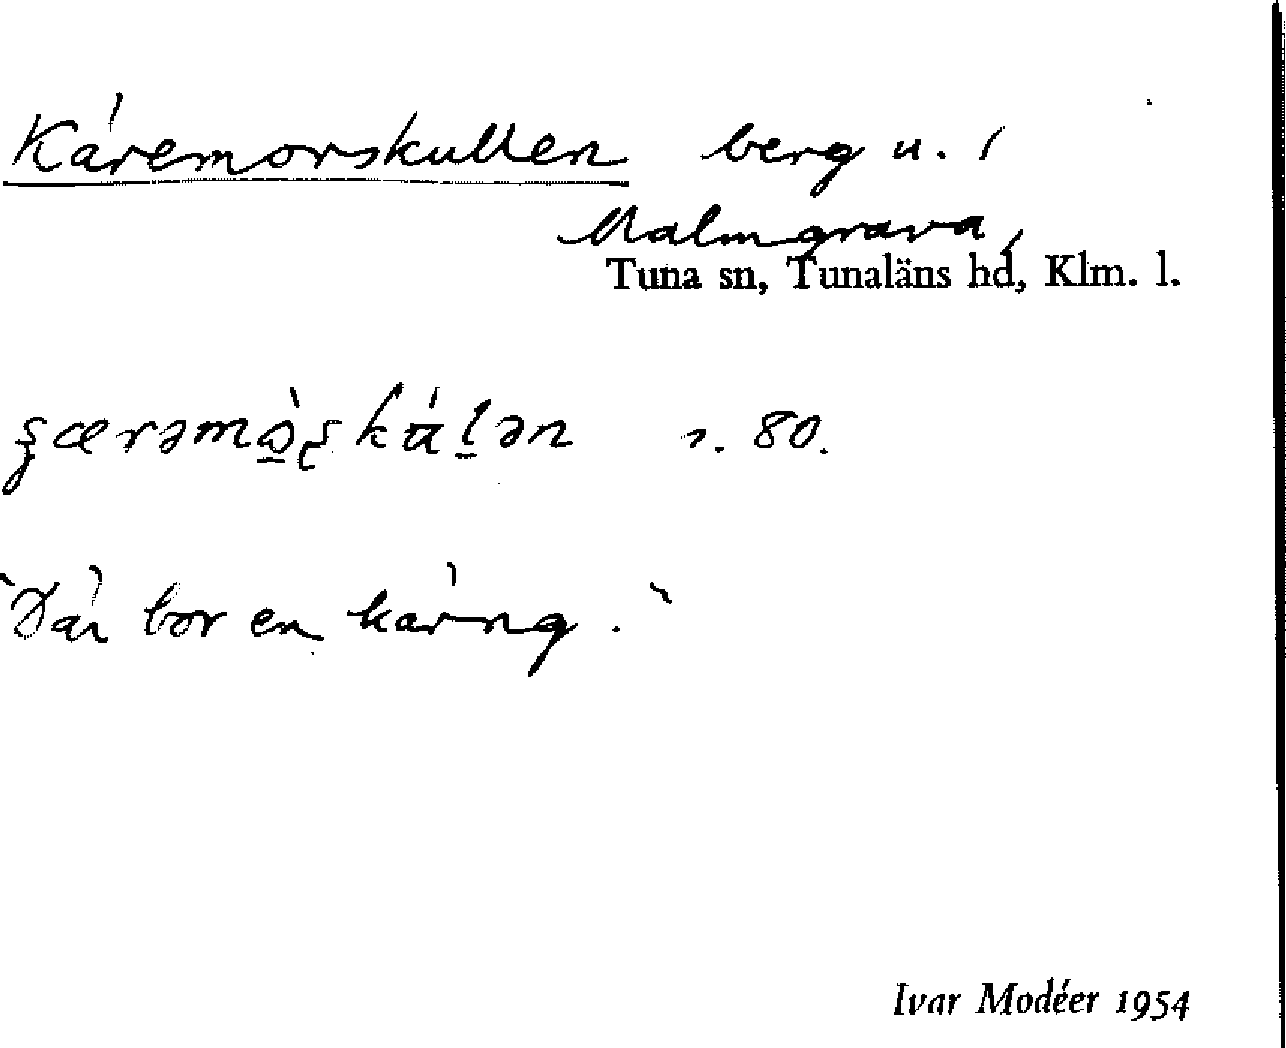 Käremorskullen berg u. i
Malmgrava,
Tuna sn, Tunaläns hd, Klm. l.
s. 80.
"Där bor en käring."
Ivar Modéer 1954